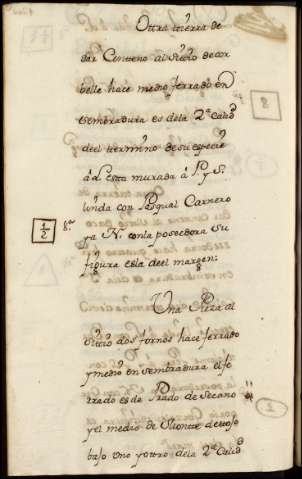 Ottra tierra de
dar Centeno al Sittio de cor
belle hace medio ferrado en
Sembradura es dela 2ª Calid
8
deel ttermino de su especie
està murada á P. y S.
linda con Pasqual Carnero
1/2
ya N. con la poseedora Su
figura es la deel margen:
Una Pieza al
Sittio dos fornos hace ferrado
y medio en sembradura el fe
rrado es de Prado de Secano
2
y el medio de Monte
bajo uno y ottro dela 2ª Calid